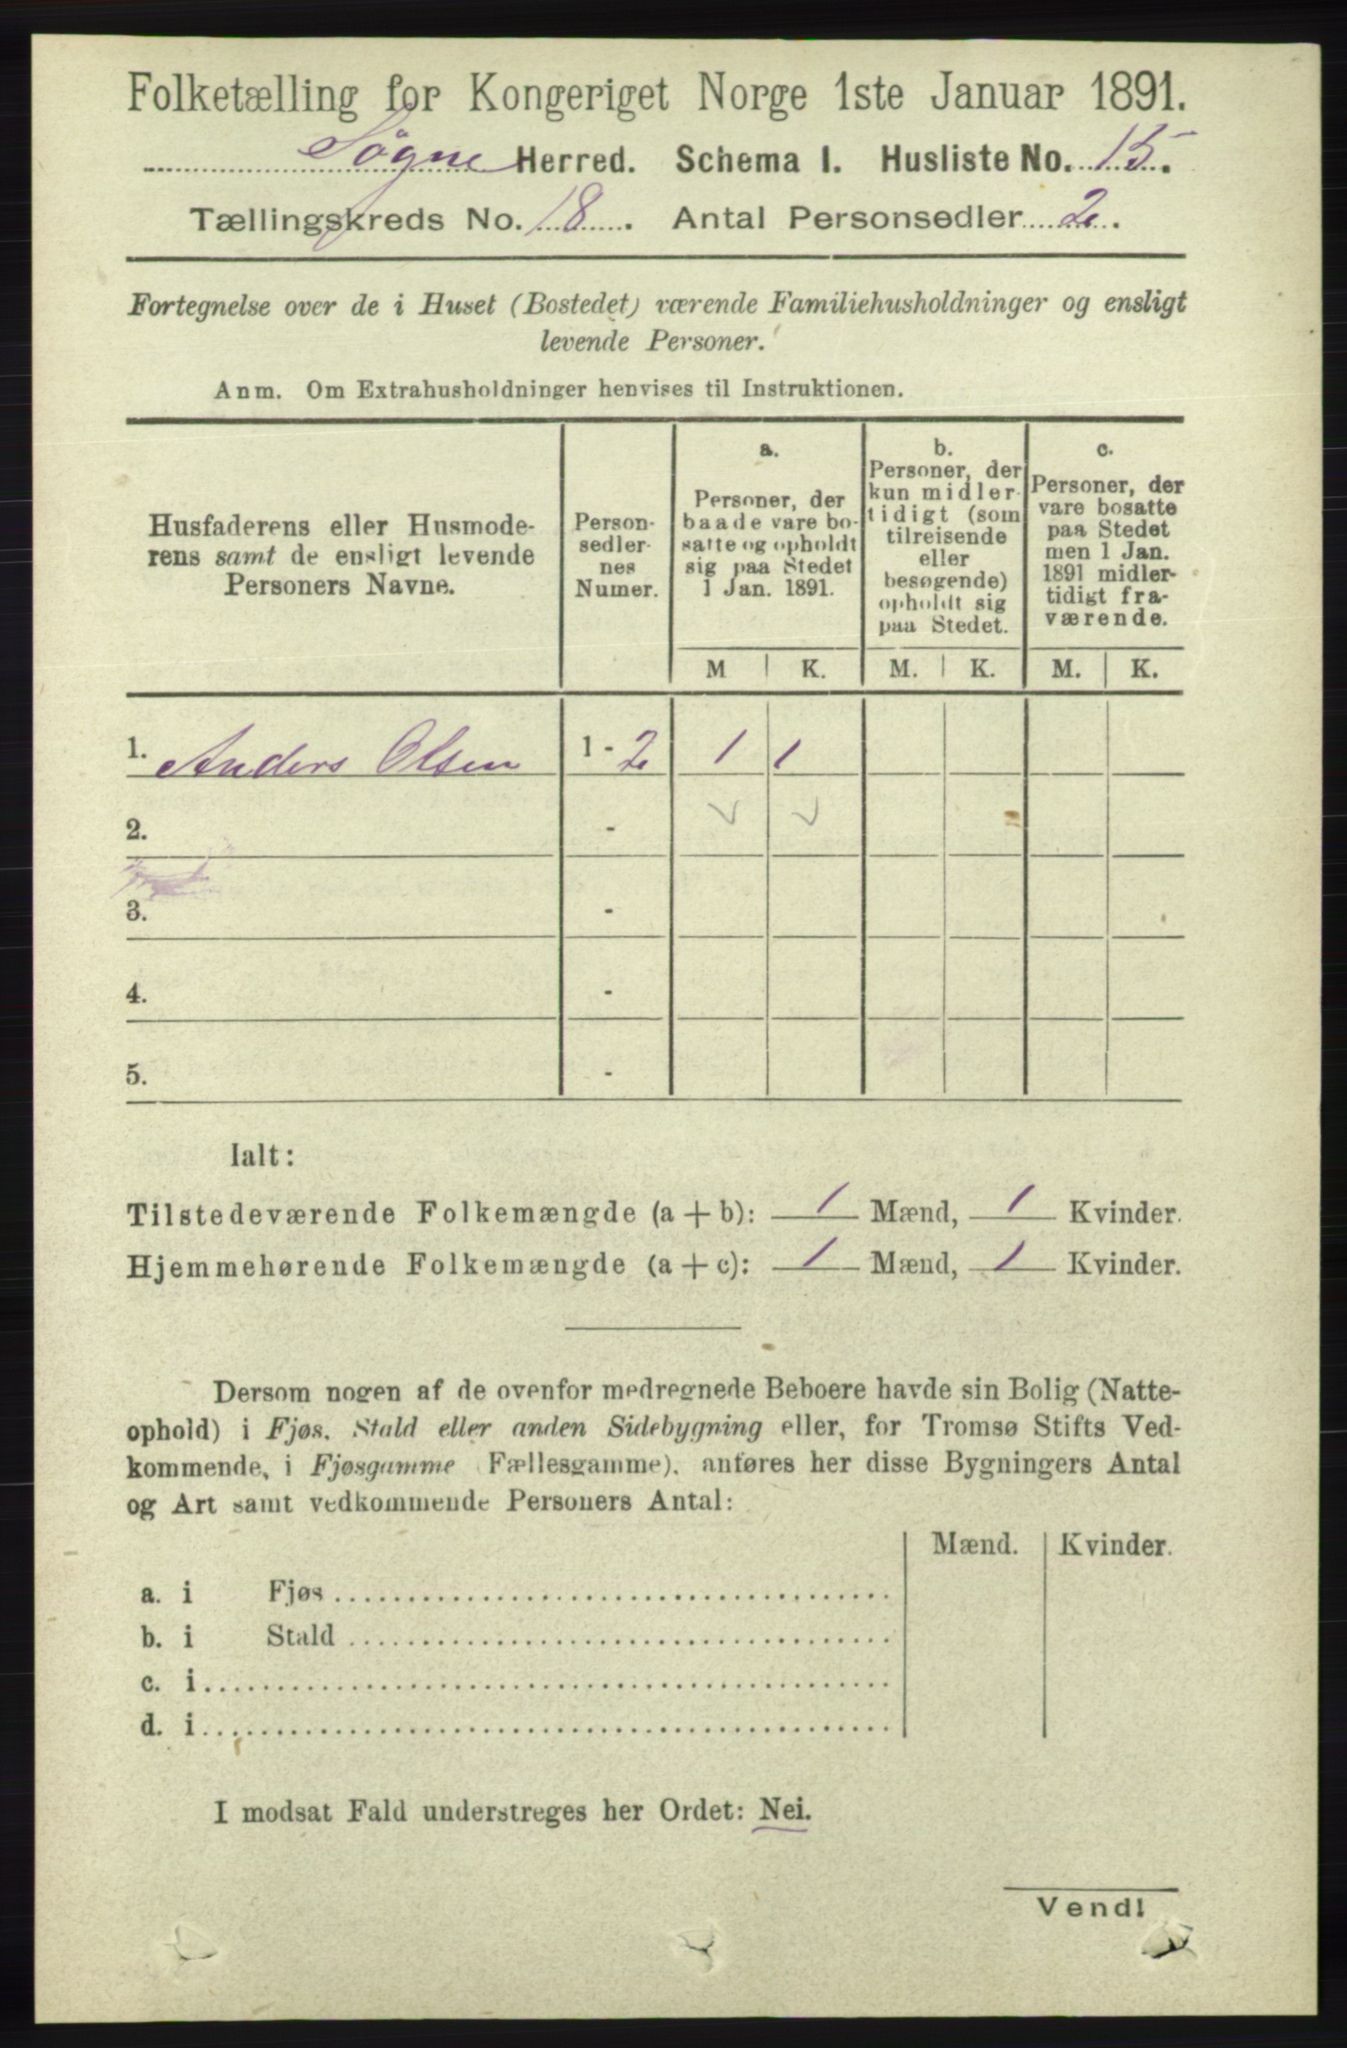 Folketælling for Kongeriget Norge 1ste Januar 1891.
Søgne Herred. Schema I. Husliste No. 15.
Tællingskreds No. 18. Antal Personsedler 2.
Fortegnelse over de i Huset (Bostedet) værende Familiehusholdninger og ensligt
levende Personer.
Anm. Om Extrahusholdninger henvises til Instruktionen.
Husfaderens eller Husmode-
rens samt de ensligt levende
Personers Navne.
Person-
sedler-
nes
Numer.
a.
Personer, der
baade vare bo-
satte og opholdt
sig paa Stedet
1 Jan. 1891.
b.
Personer, der
kun midler-
tidigt (som
tilreisende
eller
besøgende)
opholdt sig
paa Stedet.
c.
Personer, der
vare bosatte
paa Stedet
men 1 Jan.
1891 midler-
tidigt fra-
værende.
M K. M. K. M. K.
1. Anders Olsen 1 - 2 1 1
2. -
3. -
4. -
5. -
Ialt:
Tilstedeværende Folkemængde (a + b): 1 Mænd, 1 Kvinder.
Hjemmehørende Folkemængde (a + c): 1 Mænd, 1 Kvinder.
Dersom nogen af de ovenfor medregnede Beboere havde sin Bolig (Natte-
ophold) i Fjøs, Stald eller anden Sidebygning eller, for Tromsø Stifts Ved-
kommende, i Fjøsgamme Fællesgamme), anføres her disse Bygningers Antal
og Art samt vedkommende Personers Antal:
Mænd. Kvinder.
a. i Fjøs
b. i Stald
c. i
d. i
I modsat Fald understreges her Ordet: Nei.
Vend!